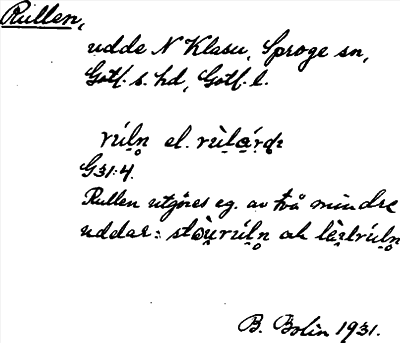 Rullen,
udde N Klasu, Sproge sn,
Gotl. s. hd, Gotl. l.
rúl̥n el. rùlárdɪ
G31:4.
Rullen utgöres eg. av två mindre
uddar: stòu̯rúl̥n och lìtlrúl̥n
B. Bolin 1931.